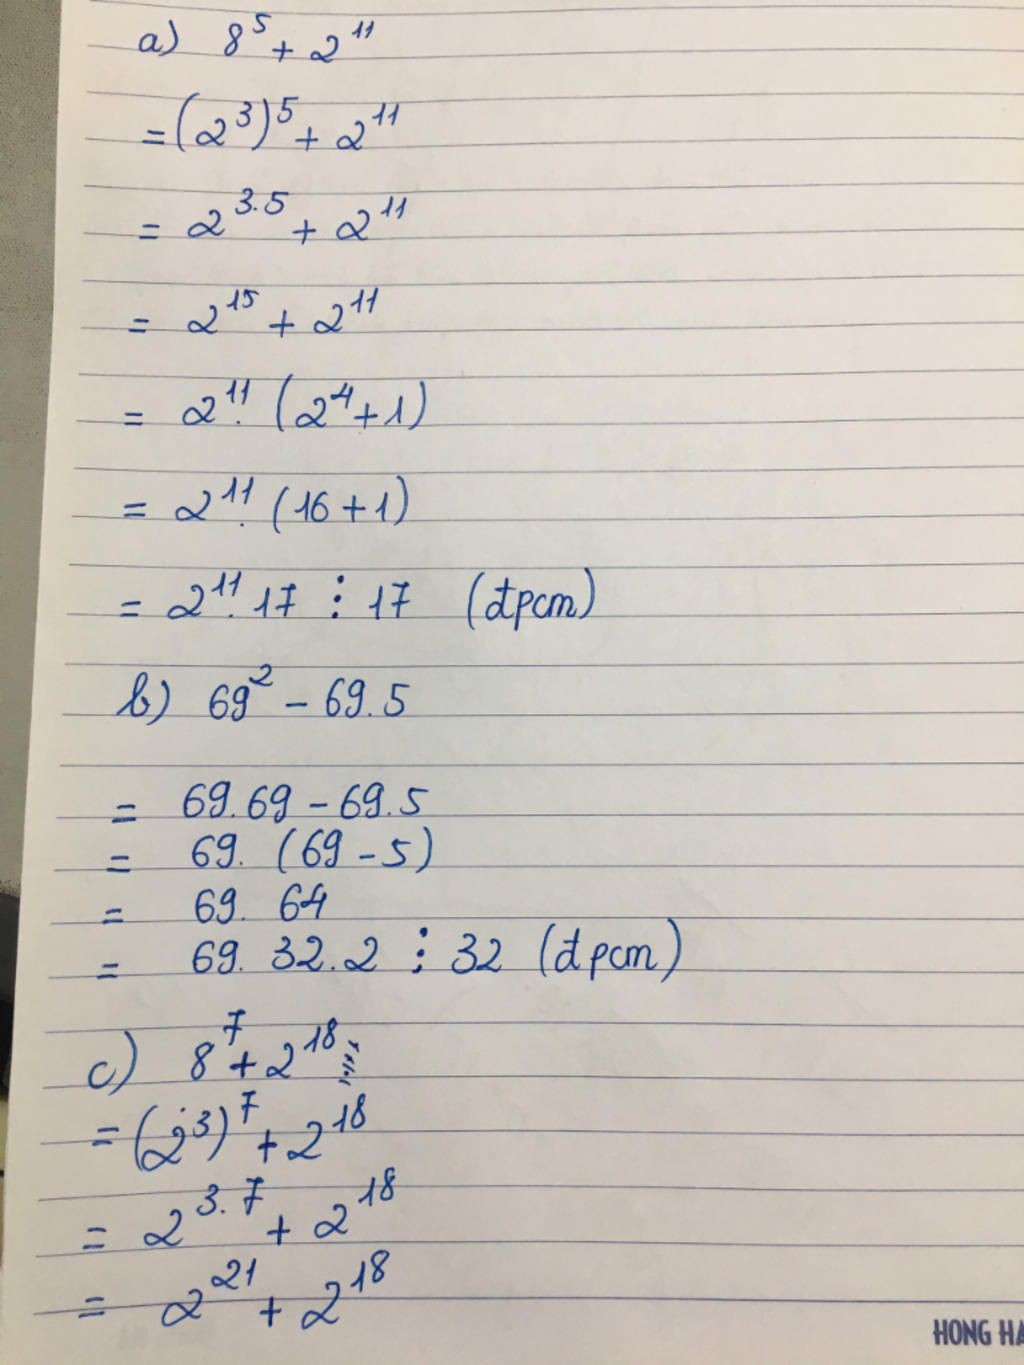 a) 8⁵ + 2¹¹
= (2³)⁵ + 2¹¹
= 2³·⁵ + 2¹¹
= 2¹⁵ + 2¹¹
= 2¹¹. (2⁴ + 1)
= 2¹¹. (16 + 1)
= 2¹¹. 17 ⋮ 17 (đpcm)
b) 69² - 69.5
= 69.69 - 69.5
= 69. (69 - 5)
= 69. 64
= 69. 32.2 ⋮ 32 (đpcm)
c) 8⁷ + 2¹⁸
= (2³)⁷ + 2¹⁸
= 2³·⁷ + 2¹⁸
= 2²¹ + 2¹⁸
HONG HA